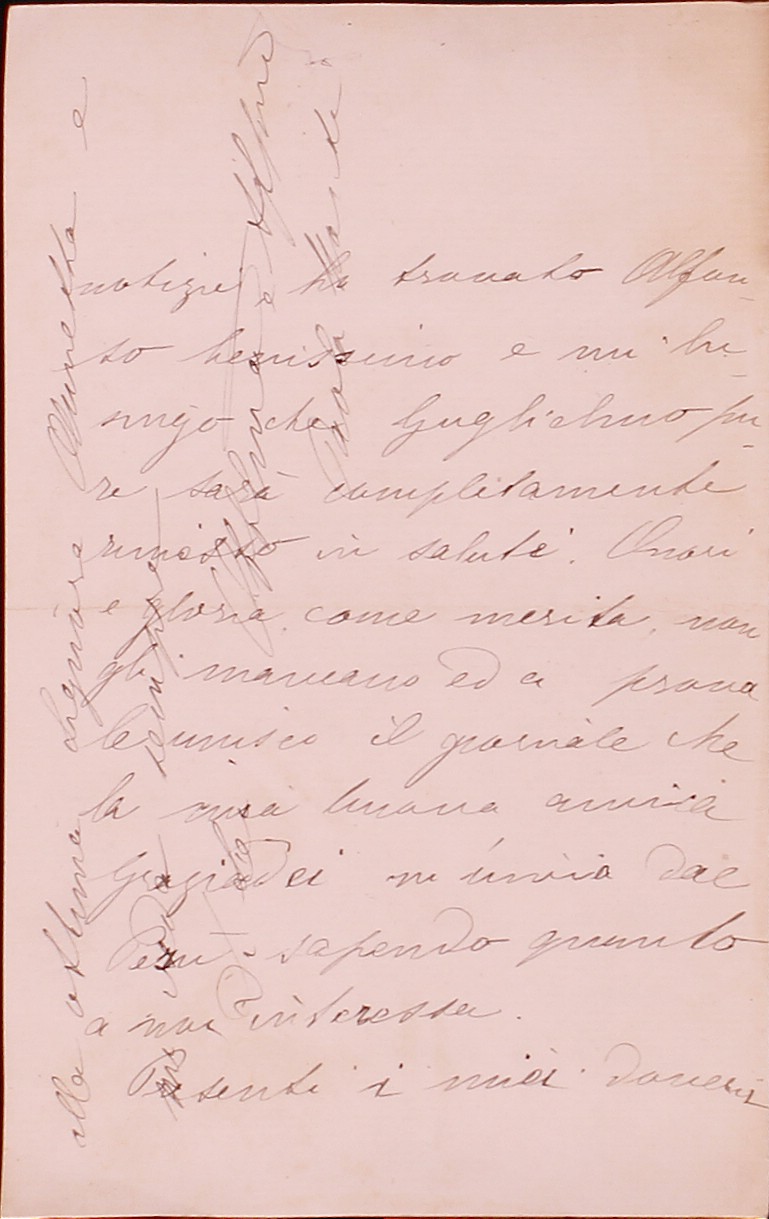 notizie ha trovato Alfon-
so benissimo e mi lu-
singo che Guglielmo pu-
re sarà completamente
rimesso in salute. Onori
e gloria, come merita, non
gli mancano ed a prova
le unisco il giornale che
la mia buona amica
Graziadei m'invia dal
Perù sapendo quanto
a noi interessa.
Presenti i miei doveri
alla ottima Signora Annetta e
mi creda sempre